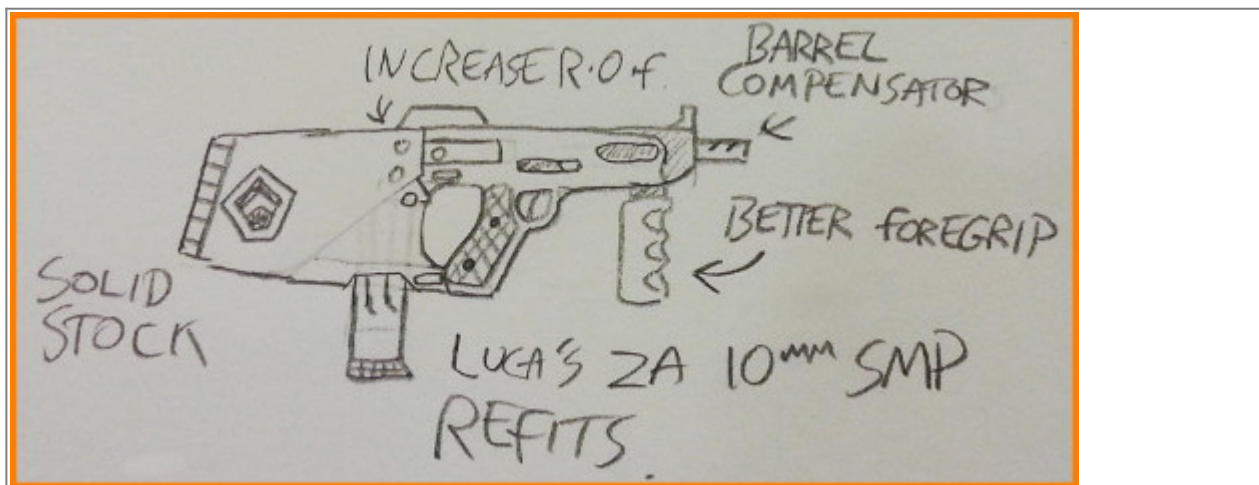 INCREASE R.O.f.
BARREL
COMPENSATOR
BETTER FOREGRIP
SOLID
STOCK
LUCA'S 2A 10mm SMP
REFITS.